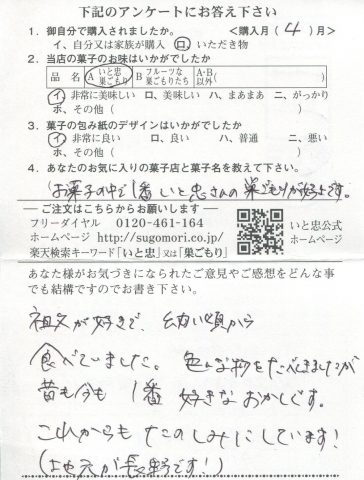 下記のアンケートにお答え下さい
1. 御自分で購入されましたか。 <購入月( 4 )月>
イ、自分又は家族が購入 ロ、いただき物
2. 当店の菓子のお味はいかがでしたか
品 名 A いと忠巣ごもり B フルーツな巣ごもりたち A・B以外( )
イ、非常に美味しい ロ、美味しい ハ、まあまあ ニ、がっかり
ホ、その他( )
3. 菓子の包み紙のデザインはいかがでしたか
イ、非常に良い ロ、良い ハ、普通 ニ、悪い
ホ、その他( )
4. あなたのお気に入りの菓子店と菓子名を教えて下さい。
お菓子の中で1番いと忠さんの巣ごもりが好きです。
ご注文はこちらからお願いします
フリーダイヤル 0120-461-164
ホームページ http://sugomori.co.jp/
楽天検索キーワード「いと忠」又は「巣ごもり」
いと忠公式
ホームページ
あなた様がお気づきになられたご意見やご感想をどんな事
でも結構ですのでお書き下さい。
祖父が好きで、幼い頃から
食べていました。色んな物をたべきましたが
昔も今も 1番 好きなおかしです。
これからもたのしみにしています!
(地元が長野です!)